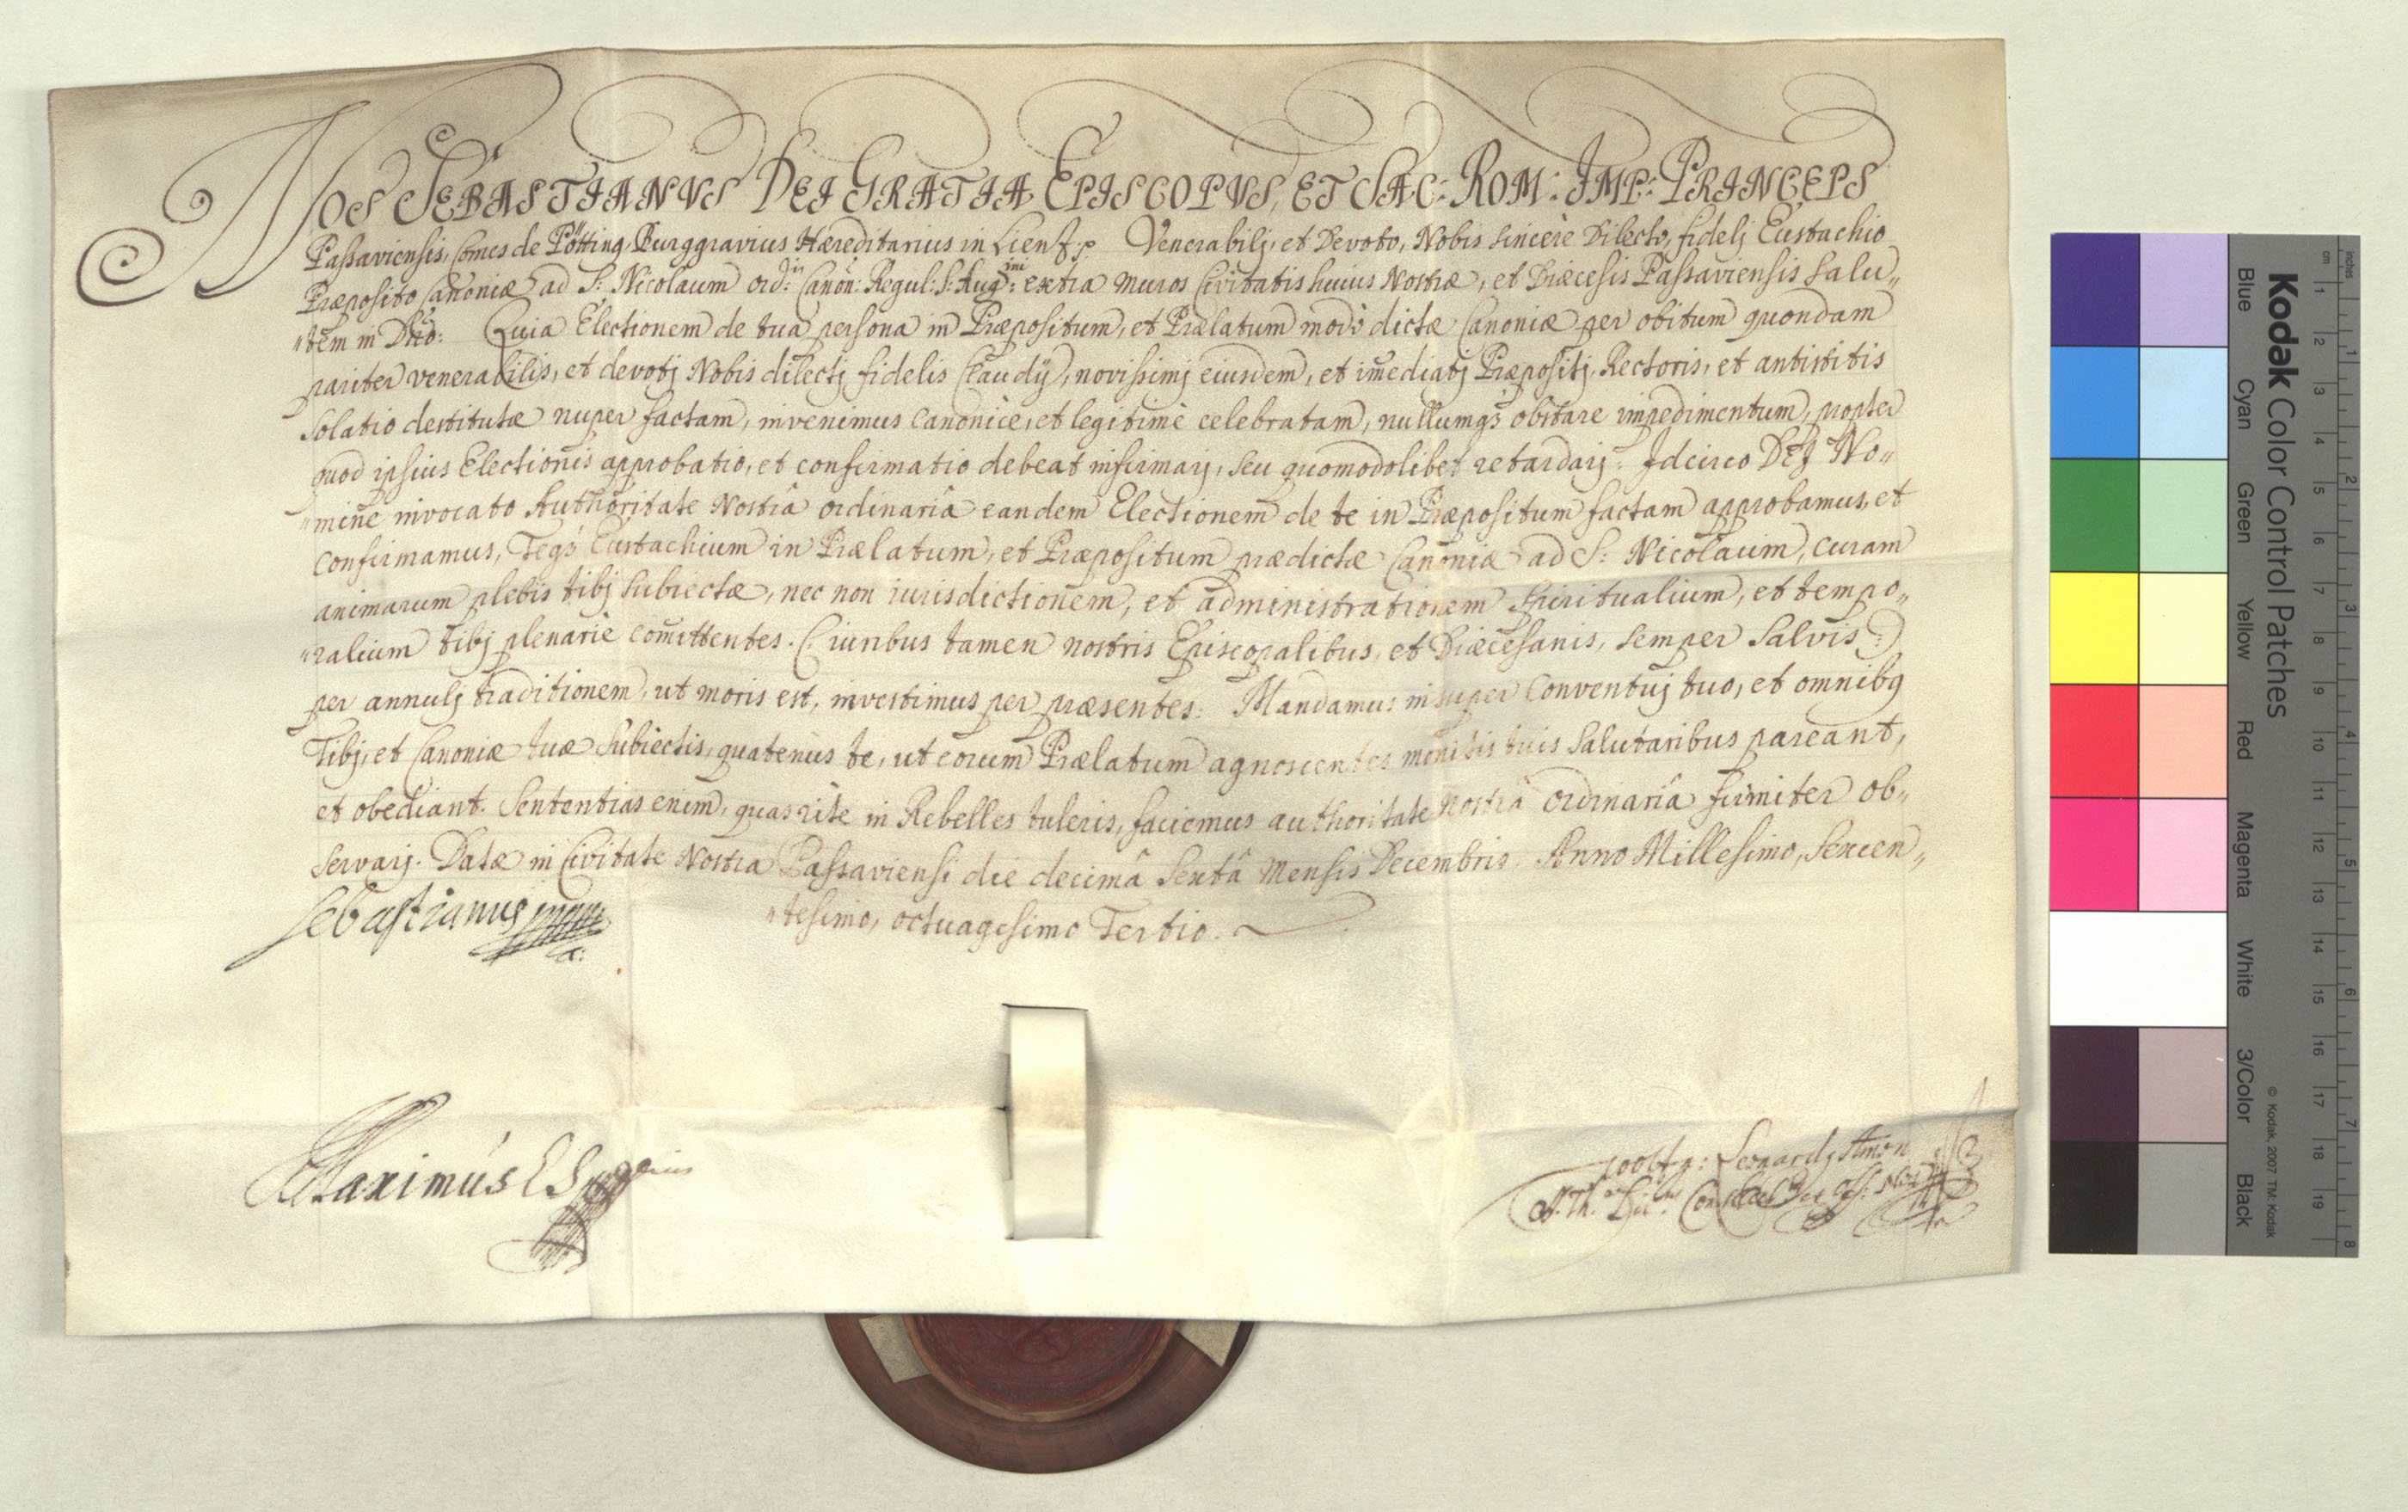 NOS SEBASTIANVS DEI GRATIA EPISCOPVS, ET SAC: ROM: IMP: PRINCEPS
Passaviensis, Comes de Pötting, Burggravius Hæreditarius in Lienz. Venerabilj, et Devoto, Nobis sincerè Dilecto, fidelj Eustachio
Præposito Canoniæ ad S: Nicolaum ord:ii Canōn: Regul: S: Aug:ini extra muros Civitatis huius Nostræ, et Diæcesis Passaviensis Salu„
„tem in Dño: Quia Electionem de tua persona in Præpositum, et Prælatum modò dictæ Canoniæ per obitum quondam
pariter venerabilis, et devotj Nobis dilectj fidelis Claudij, novissimj eiusdem, et im̄ediatj Præpositj, Rectoris, et antistitis
solatio destitutæ nuper factam, invenimus canonicè, et legitimè celebratam, nullumq3 obstare impedimentum, propter
quod ipsius Electionis approbatio, et confirmatio debeat infirmarj, seu quomodolibet retardarj: Idcirco DEJ No„
„mine invocato Authoritate Nostrâ ordinariâ eandem Electionem de te in Præpositum factam approbamus, et
confirmamus, Teq3 Eustachium in Prælatum, et Præpositum prædictæ Canoniæ ad S: Nicolaum, curam
animarum plebis tibj subiectæ, nec non iurisdictionem, et administrationem Spiritualium, et tempo„
„ralium tibj plenariè com̄ittentes. (: iuribus tamen nostris Episcopalibus, et Diæcesanis, semper salvis :)
per annulj traditionem, ut moris est, investimus per præsentes: Mandamus insuper Conventuj tuo, et omnibq
Tibj, et Canoniæ tuæ subiectis, quatenus te, ut eorum Prælatum agnoscentes monitis tuis salutaribus pareant,
et obediant. Sententias enim, quas ritè in Rebelles tuleris, faciemus authoritate nostrâ ordinariâ firmiter ob„
servarj. Datæ in Civitate Nostra Passaviensi die decimâ Sextâ Mensis Decembris. Anno Millesimo, Sexcen„
„tesimo, octuagesimo Tertio.
Sebastianus
Maximus
Leonardj Amon
Kodak Color Control Patches
Blue Cyan Green Yellow Red Magenta White 3/Color Black
© Kodak, 2007 TM: Kodak
cm 1 2 3 4 5 6 7 8 9 10 11 12 13 14 15 16 17 18 19
inches 1 2 3 4 5 6 7 8